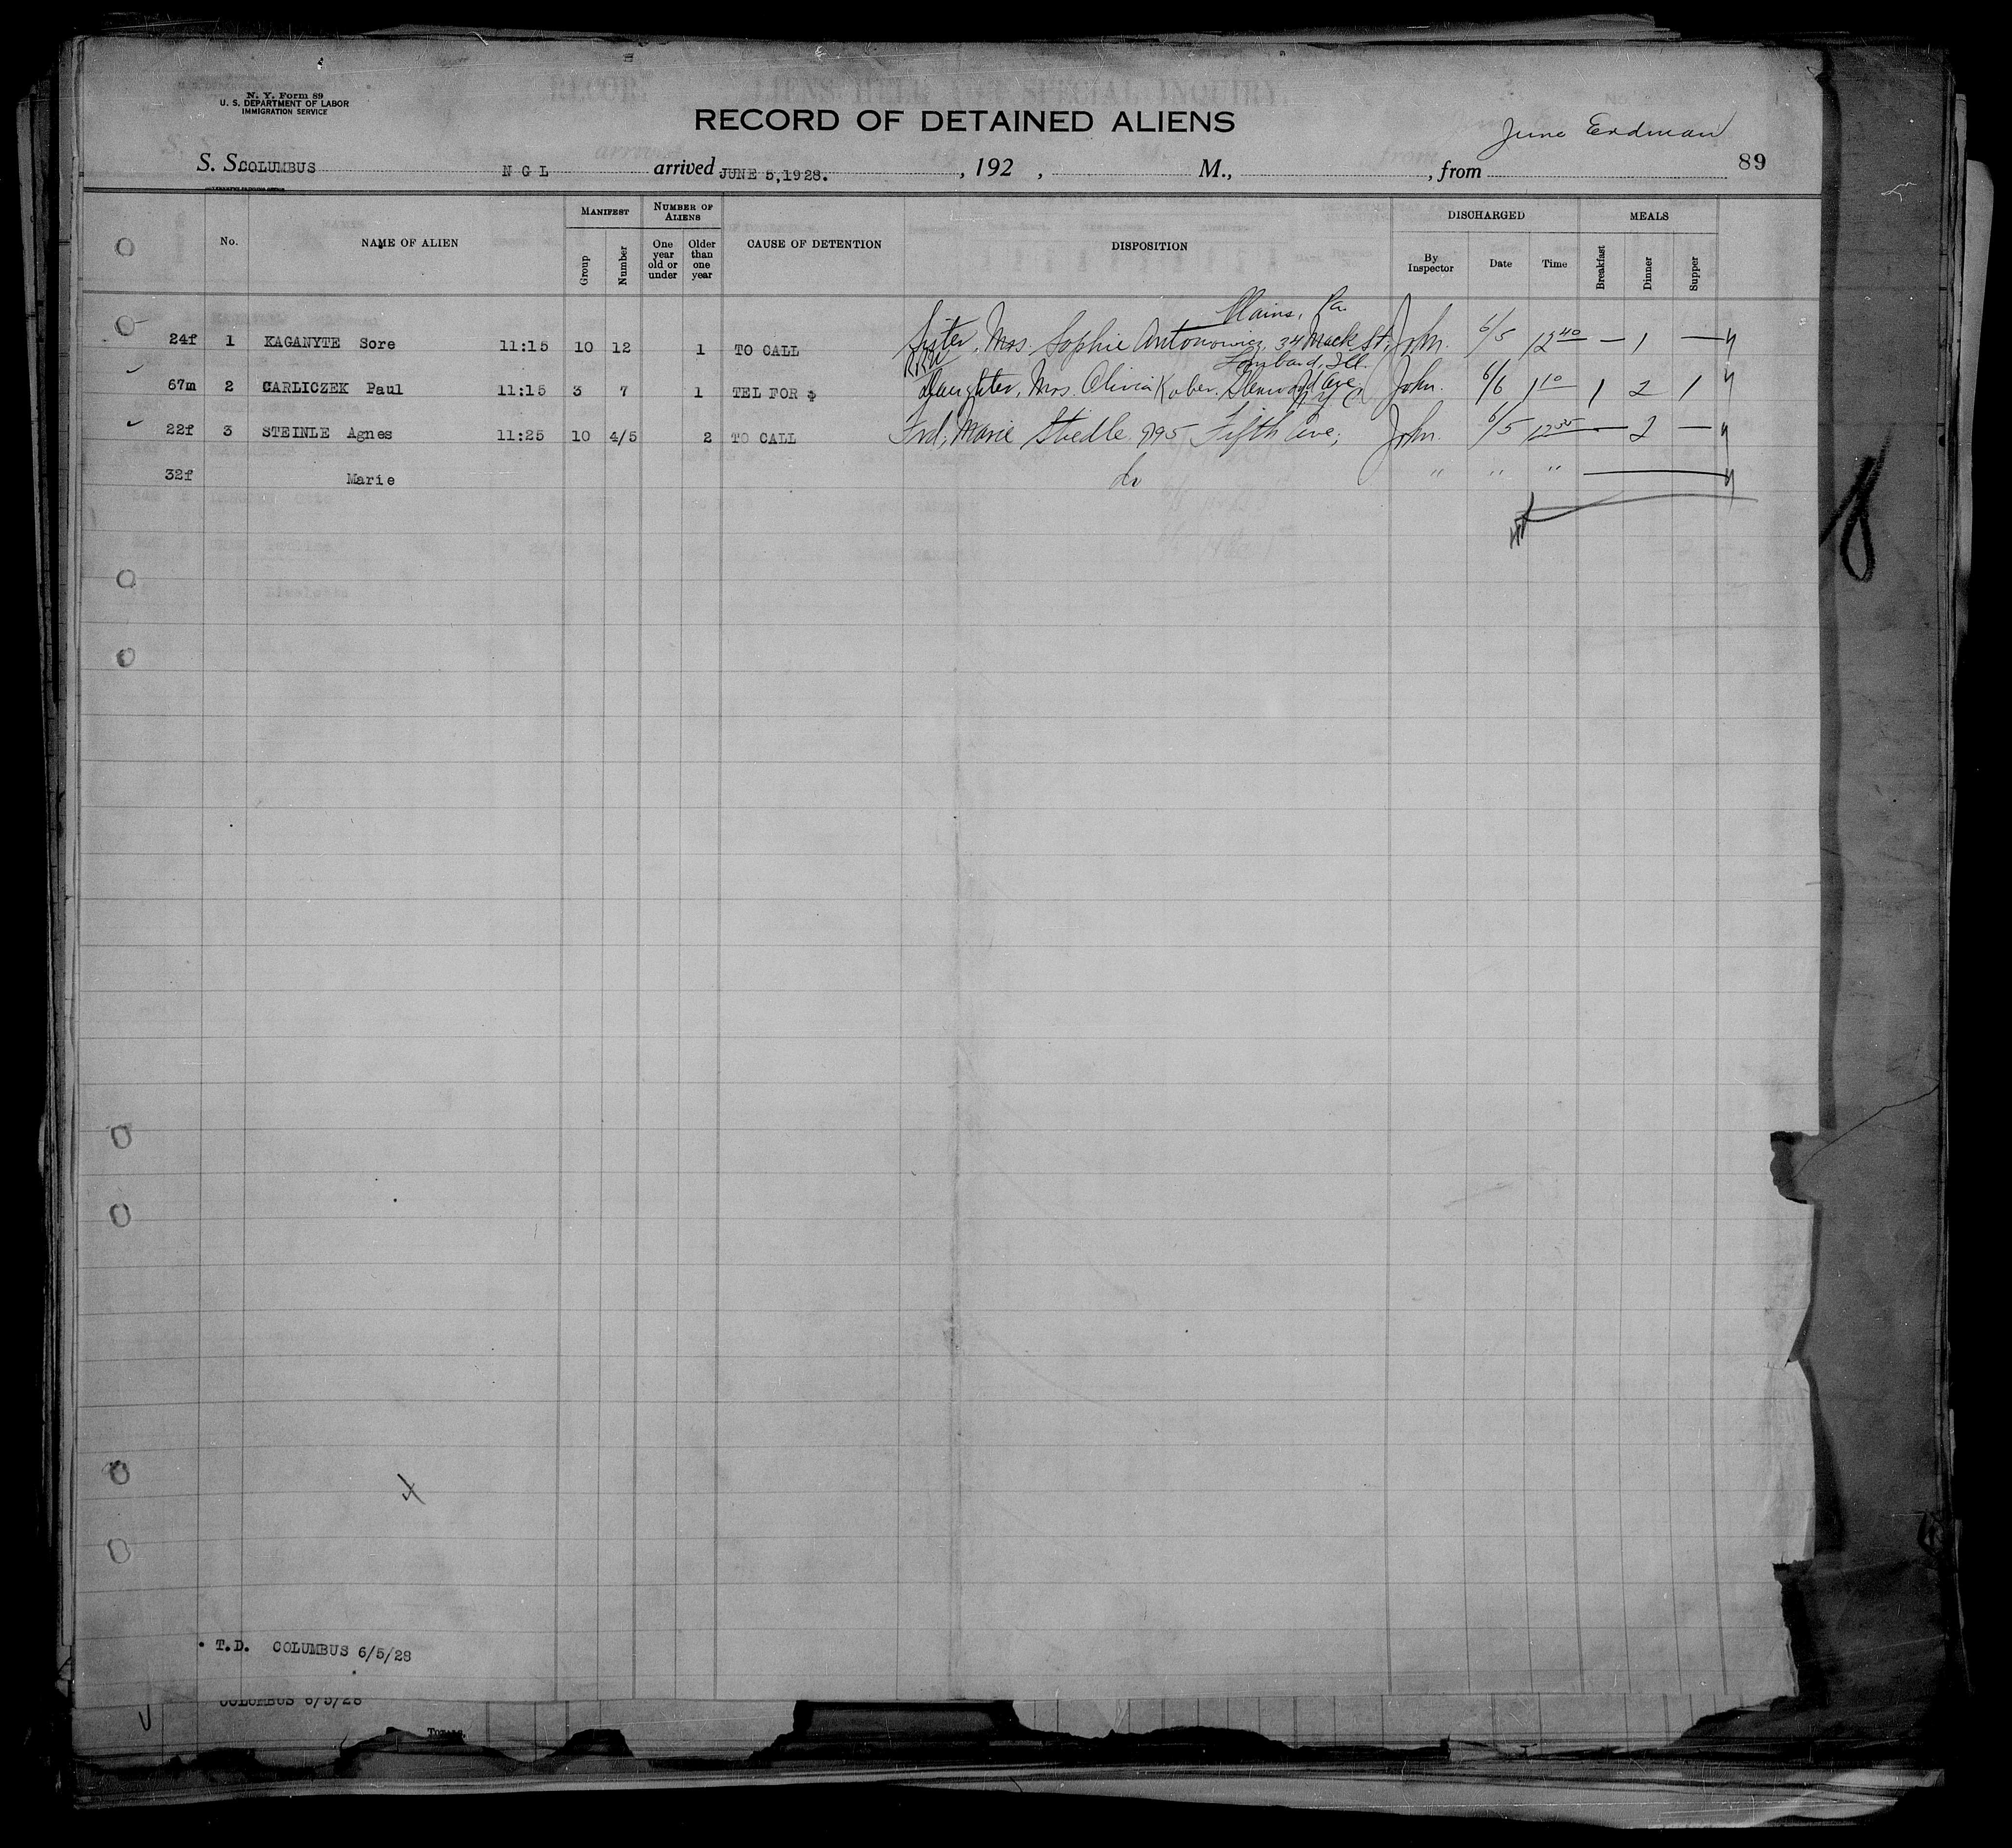 N. Y. Form 89
U. S. DEPARTMENT OF LABOR
IMMIGRATION SERVICE
RECORD OF DETAINED ALIENS
June Erdman
S. S. COLUMBUS N G L arrived JUNE 5,1928. , 192 , M., , from 89
No. NAME OF ALIEN MANIFEST Group Number NUMBER OF ALIENS One year old or under Older than one year CAUSE OF DETENTION DISPOSITION DISCHARGED By Inspector Date Time MEALS Breakfast Dinner Supper
Plains, Pa.
24f 1 KAGANYTE Sore 11:15 10 12 1 TO CALL Sister, Mrs. Sophie Antonowicz, 34 Mack St, John. 6/5 12 40 — 1 —
Lombard, Ill.
67m 2 CARLICZEK Paul 11:15 3 7 1 TEL FOR $ Daughter, Mrs. Olivia Kober. Ave John. 6/6 1 10 1 2 1
N Y C
22f 3 STEINLE Agnes 11:25 10 4/5 2 TO CALL Frd, Marie Stiedle 995 Fifth Ave, John. 6/5 12 35 — 2 —
32f Marie do " " "
T.D. COLUMBUS 6/5/28
COLUMBUS 6/5/28
Totals.